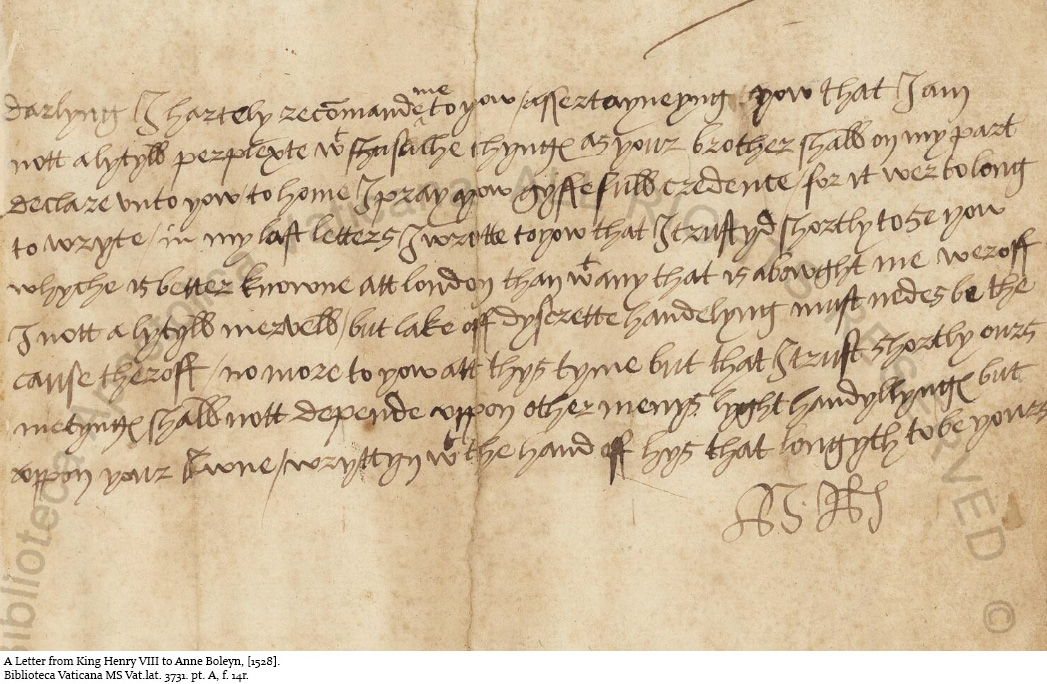 darlyng I hartely recōmande me to yow / assertayneyng yow that I am
nott a lytyll perplexte wt suche thyng as your brother shall on my part
declare unto yow / to home I pray yow gyffe full credence / for it wer to long
to wryte / in my last letters I wrotte to yow that I trustyd shortly to se yow
whyche is better knowne att london than wt any that is abowght me weroff
I nott a lytyll mervell / but lake off dyscrette handelyng must nedes be the
cause theroff / no more to yow att thys tyme but that I trust shortly ours
metyngs shall nott depende uppon other menys lyght handyllyngs but
uppon your awne / wryttyn wt the hand off hys that longyth to be yours
H. Rx
Biblioteca Apostolica Vaticana ALL RIGHTS RESERVED ©
A Letter from King Henry VIII to Anne Boleyn, [1528].
Biblioteca Vaticana MS Vat.lat. 3731. pt. A, f. 14r.